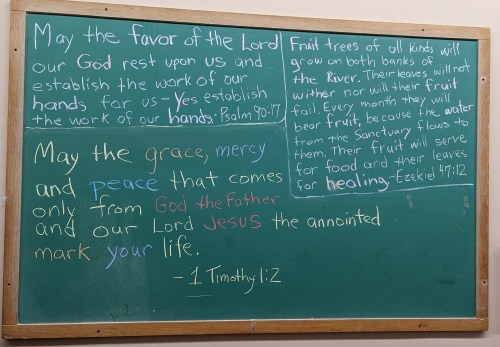 May the favor of the Lord
our God rest upon us and
establish the work of our
hands for us - Yes establish
the work of our hands - Psalm 90:17
Fruit trees of all kinds will
grow on both banks of
the River. Their leaves will not
wither nor will their fruit
fail. Every month they will
bear fruit, because the water
from the Sanctuary flows to
them. Their fruit will serve
for food and their leaves
for healing. - Ezekiel 47:12
May the grace, mercy
and peace that comes
only from God the Father
and our Lord Jesus the annointed
mark your life.
- 1 Timothy 1:2